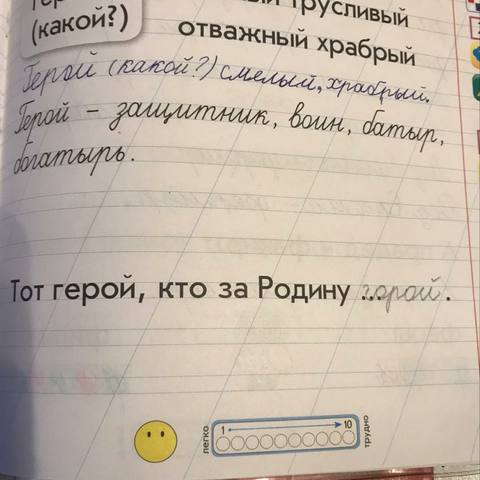 трусливый
(какой?)
отважный храбрый
Герой (какой?) смелый, храбрый.
Герой – защитник, воин, батыр,
богатырь.
Тот герой, кто за Родину ...горой.
легко
1 10
трудно